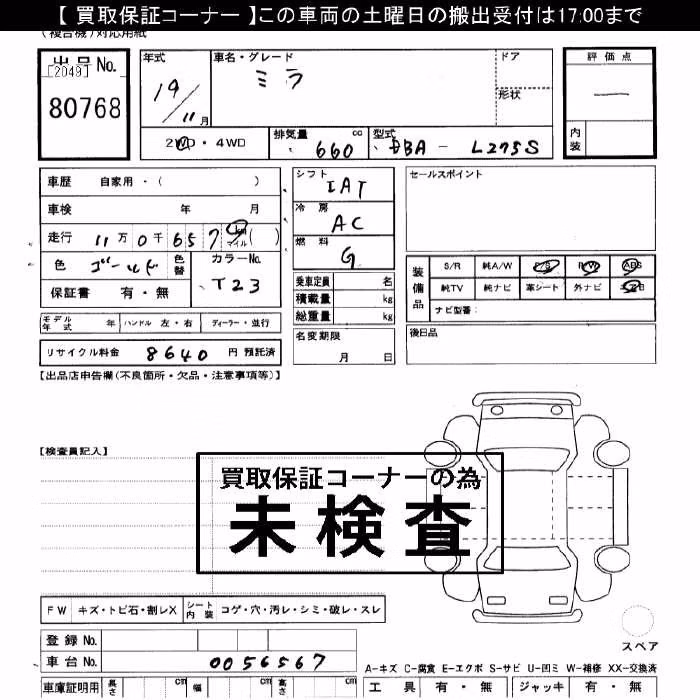 【 買取保証コーナー 】この車両の土曜日の搬出受付は17:00まで
(複合機)対応用紙
出品No.
[2049]
80768
年式
19/11月
車名・グレード
ミラ
ドア
形状
評価点
内装
2WD・4WD
排気量 660 cc
型式 DBA - L275S
車歴 自家用・( )
車検 年 月
走行 11万0千657 km マイル ( )
色 ゴールド 色替
カラーNo. T23
保証書 有・無
シフト IAT
冷房 AC
燃料 G
乗車定員 名
積載量 kg
総重量 kg
セールスポイント
装備品
S/R 純A/W P/S P/W ABS
純TV 純ナビ 革シート 外ナビ
ナビ型番:
モデル年式 年 ハンドル 左・右 ディーラー・並行
名変期限 月 日
後日品
リサイクル料金 8640 円 預託済
【出品店申告欄(不良箇所・欠品・注意事項等)】
【検査員記入】
買取保証コーナーの為
未検査
FW キズ・トビ石・割レX シート内装 コゲ・穴・汚レ・シミ・破レ・スレ
スペア
登録No.
車台No. 0056567
A-キズ C-腐食 E-エクボ S-サビ U-凹ミ W-補修 XX-交換済
車庫証明用 長さ cm 幅 cm 高さ cm
工具 有・無 ジャッキ 有・無